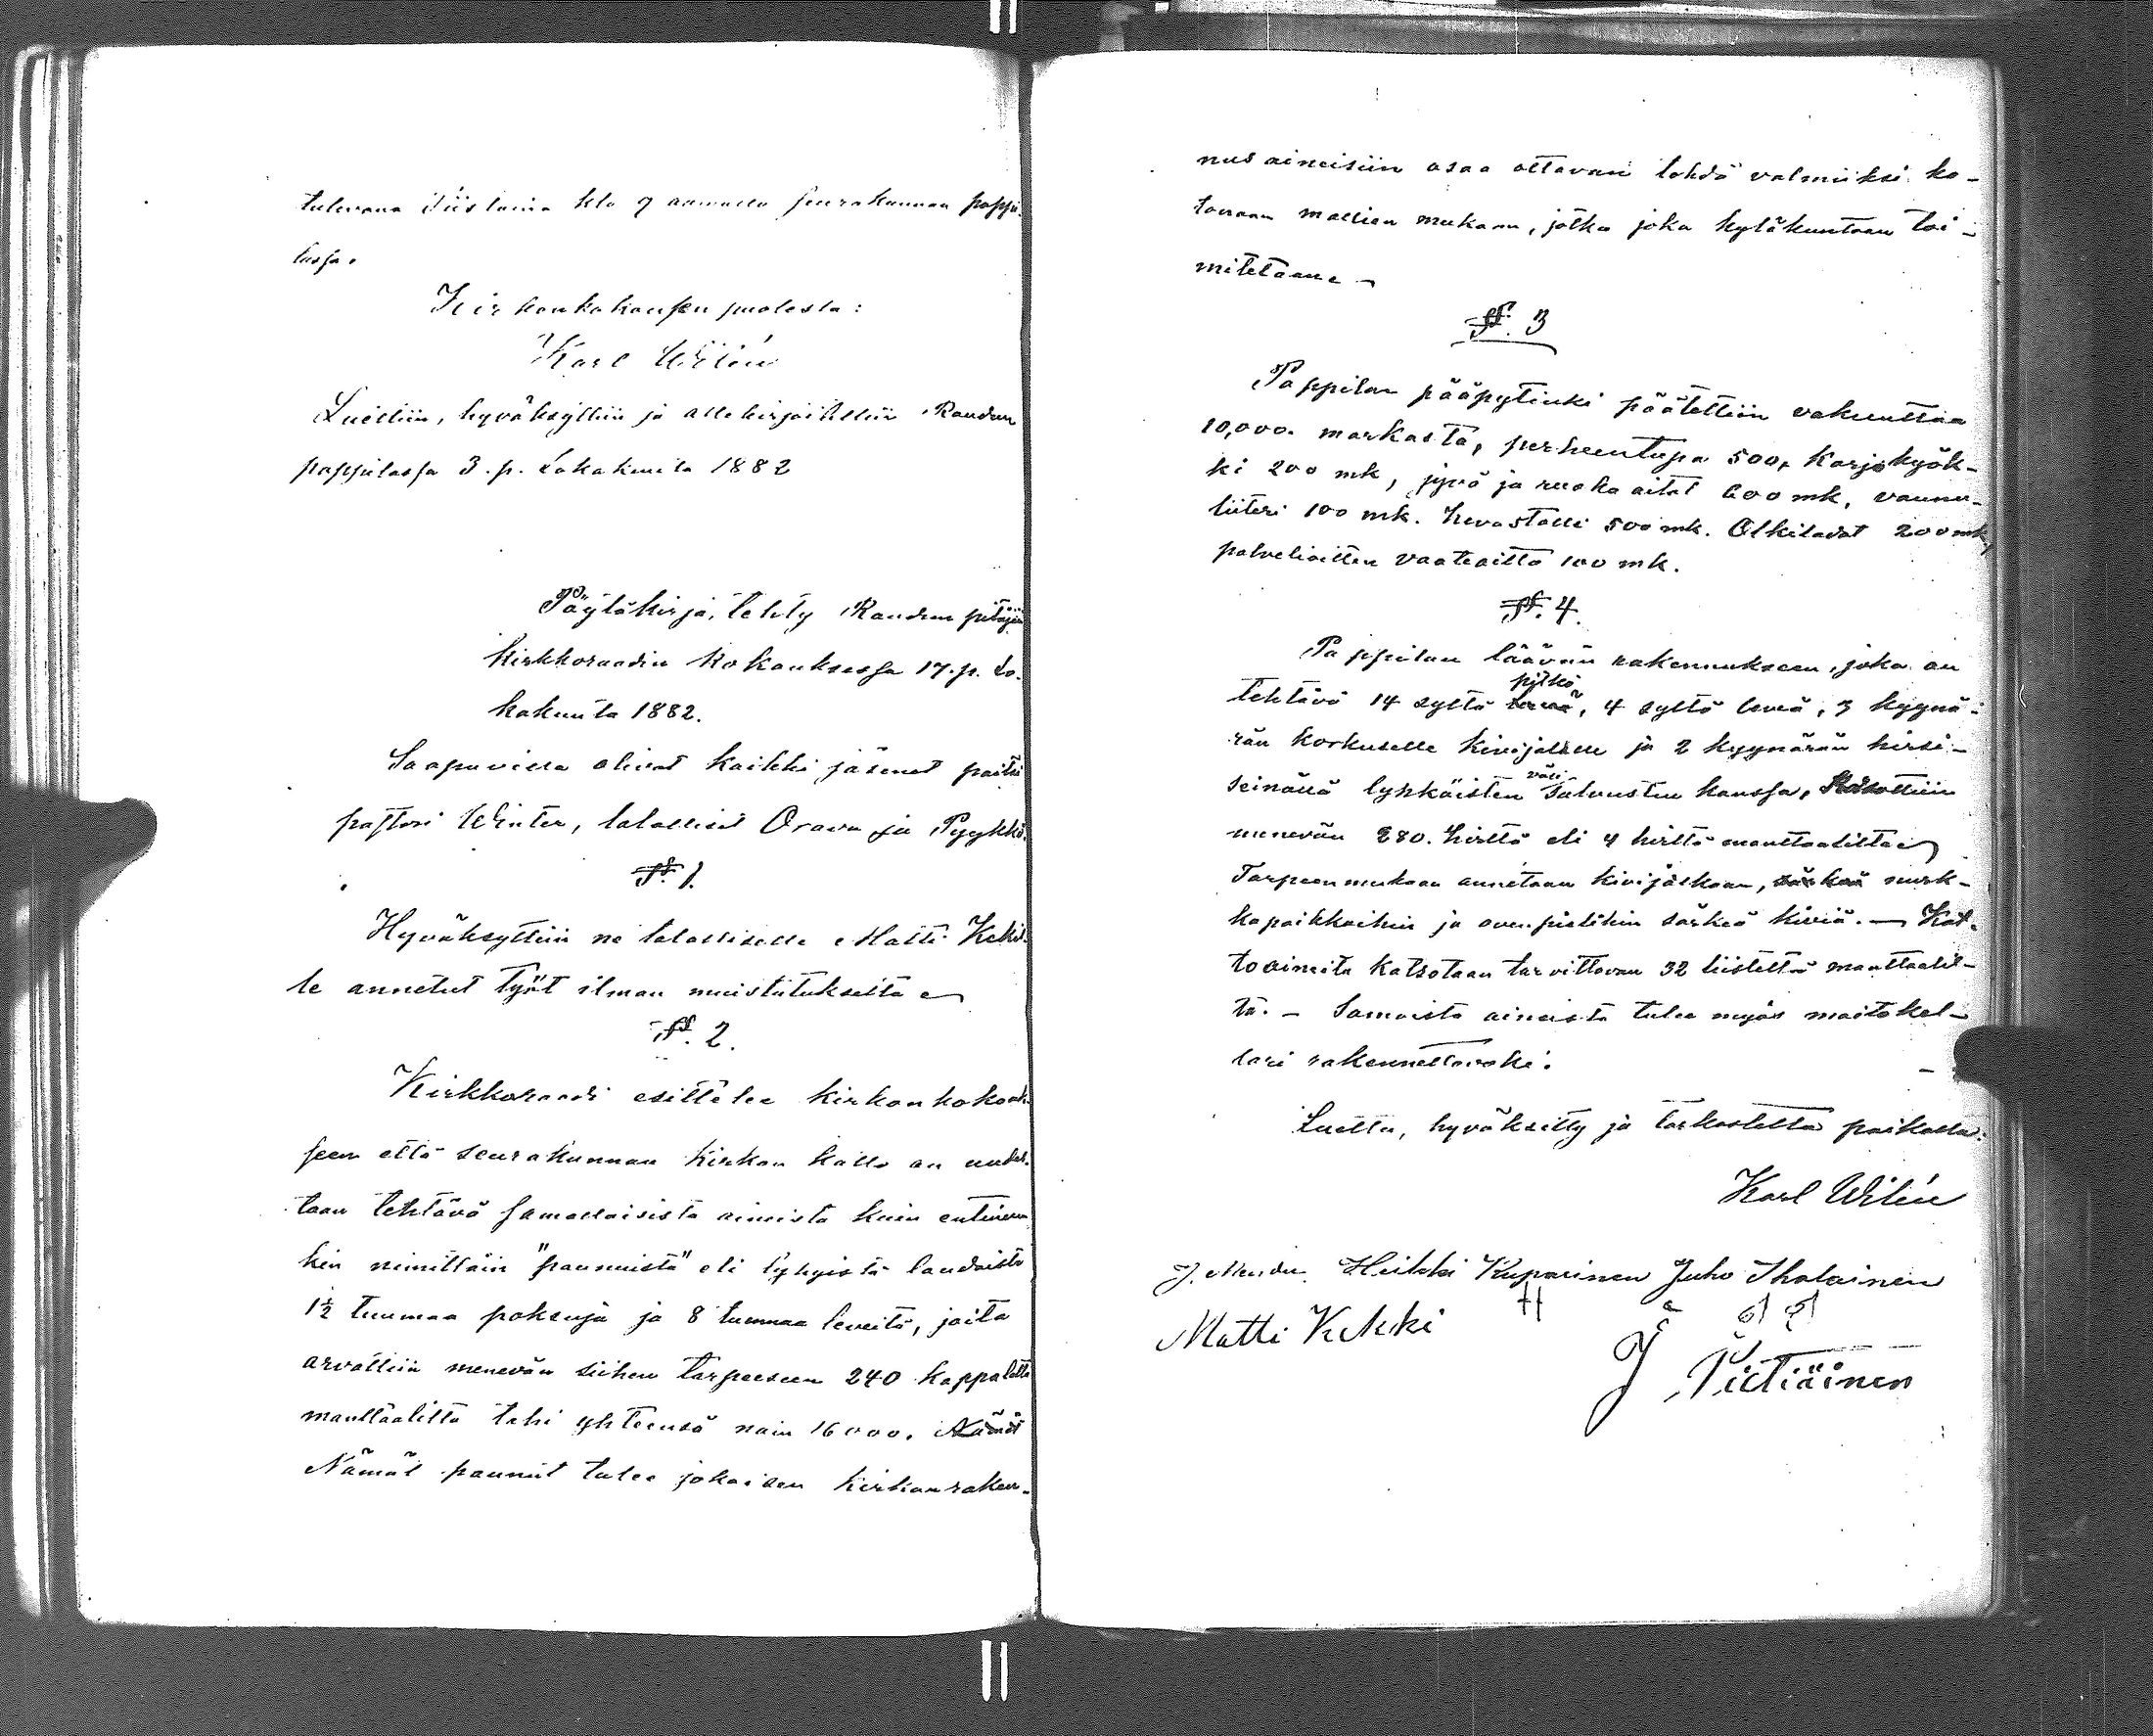 tulevana tiistaina klo 9 aamulla seurakunnan pappi-
lassa.
Kirkonkokouksen puolesta:
Karl Wilén
Luettiin, hyväksyttiin ja allekirjoitettiin Raudun
pappilassa 3. p. Lokakuuta 1882
Pöytäkirja, tehty Raudun pitäjän
kirkkoraadin kokouksessa 17. p. Lo-
kakuuta 1882.
Saapuvilla olivat kaikki jäsenet paitsi
pastori Winter, talolliset Orava ja Pyykkö.
§. 1.
Hyväksyttiin ne talolliselle Matti Kekil-
le annetut työt ilman muistutuksetta
§. 2.
Kirkkoraadi esittelee kirkonkokouk-
seen että seurakunnan kirkon katto on uudes-
taan tehtävä samallaisista aineista kuin entinen
kin nimittäin "paunuista" eli lyhyistä laudoista
1½ tuumaa paksuja ja 8 tuumaa leveitä, joita
arvattiin menevän siihen tarpeeseen 240 kappaletta
manttaalilta tahi yhteensä noin 16000. Nämät
Nämät paunut tulee jokaisen kirkonraken-
nus aineisiin osaa ottavan tehdä valmiiksi ko-
tonaan mallien mukaan, jotka joka kyläkuntaan toi-
mitetaan.
§. 3
Pappilan pääpytinki päätettiin vakuuttaa
10,000. markasta, perheentupa 500, Karjakyök-
ki 200 mk, jyvä ja ruoka aitat 600 mk, vaunu-
liiteri 100 mk. hevostalli 500 mk. Olkiladot 200 mk,
palvelioitten vaateaitta 100 mk.
§. 4.
Pappilan läävän rakennukseen, joka on
pitkä
tehtävä 14 syltä leveä, 4 syltä leveä, 3 kyynä-
rän korkuselle kivijalalle ja 2 kyynärän hirsi-
väli
seinällä lyhkäisten salvosten kanssa, katsottiin
menevän 280. hirttä eli 4 hirttä manttaalilta
Tarpeen mukaan annetaan kivijalkaan, särkeä nurk-
kapaikkoihin ja ovenpielihin särkeä kiviä. — Kat-
toaineita katsotaan tarvittavan 32 liistettä manttaalil-
ta. — Samoista aineista tulee myös maitokel-
lari rakennettavaksi.
Luettu, hyväksitty ja tarkastettu paikalla:
Karl Wilén
Heikki Kuparinen Juho Ihalainen
Matti Kekki
J Pietiäinen